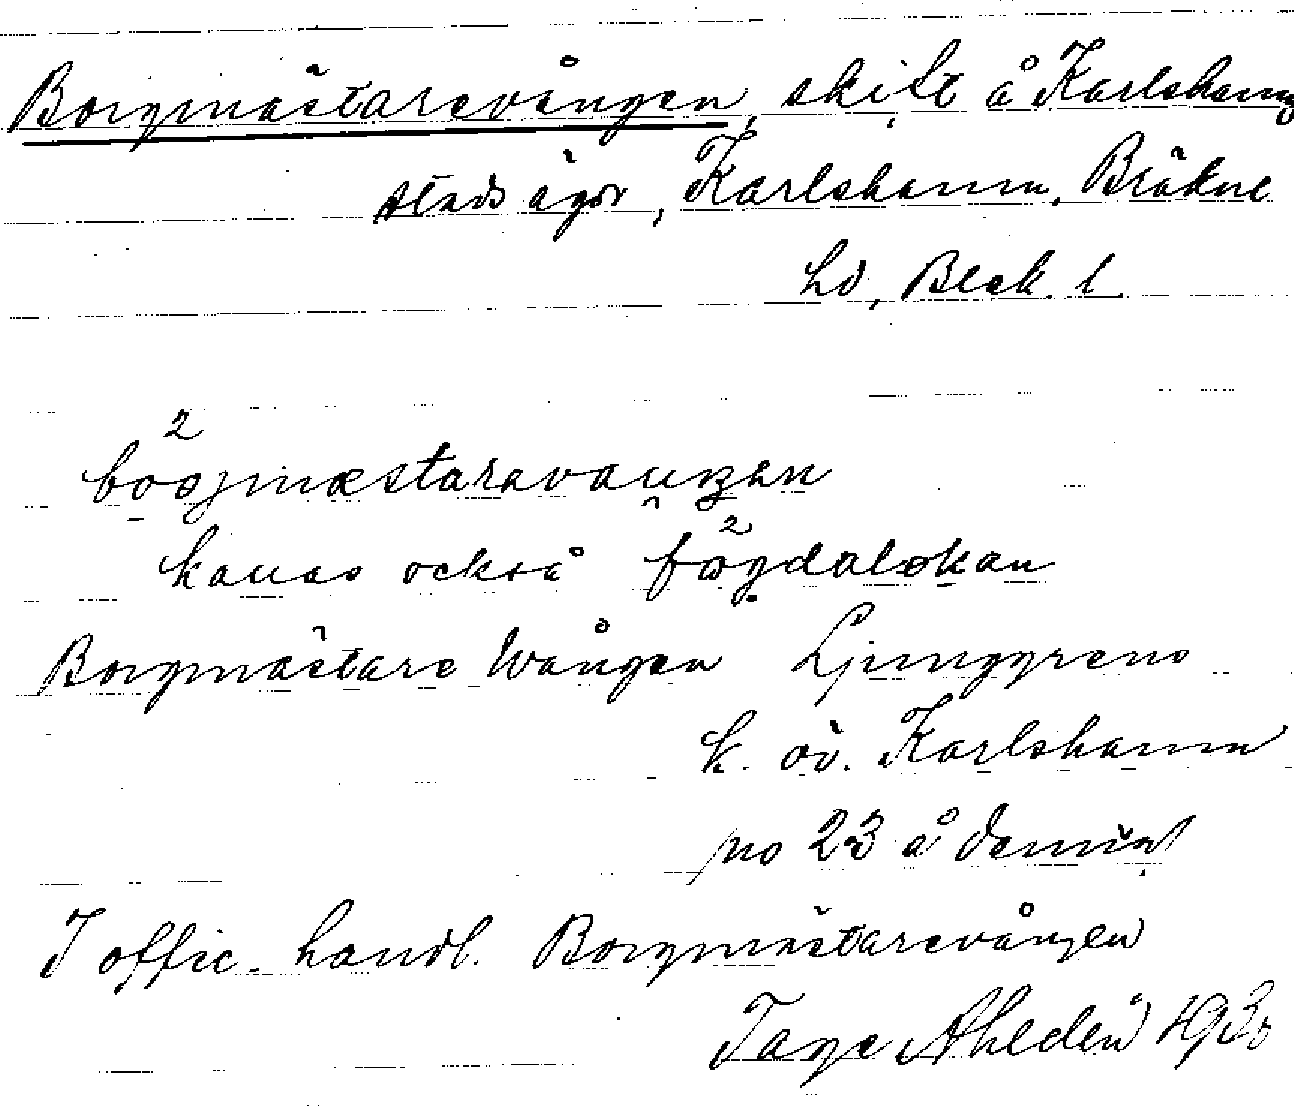 Borgmästarevången, skift å Karlshamns
stads ägor, Karlshamn, Bräkne
hd, Blek. l.
2
bosjmæstaravauŋen
kallas också
Borgmästare Wången Ljunggrens
k. öv. Karlshamn
no 23 å
I offic. handl. Borgmästarevången
Tage Ahldén 1930